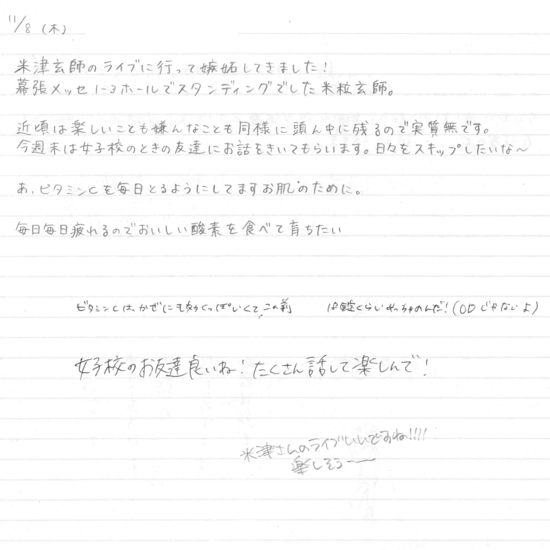 11/8 (木)
米津玄師のライブに行って嫉妬してきました!
幕張メッセ 1-3ホールでスタンディングでした米粒玄師。
近頃は楽しいことも嫌んなことも同様に頭ん中に残るので実質無です。
今週末は女子校のときの友達にお話をきいてもらいます。日々をスキップしたいな〜
あ、ビタミンCを毎日とるようにしてますお肌のために。
毎日毎日疲れるのでおいしい酸素を食べて育ちたい
ビタミンCは、かぜにも効くっぽいくて、この前 くらいめっちゃのんだ!(ODじゃないよ)
女子校のお友達良いね!たくさん話して楽しんで!
米津さんのライブいいですね!!!!
楽しそう〜